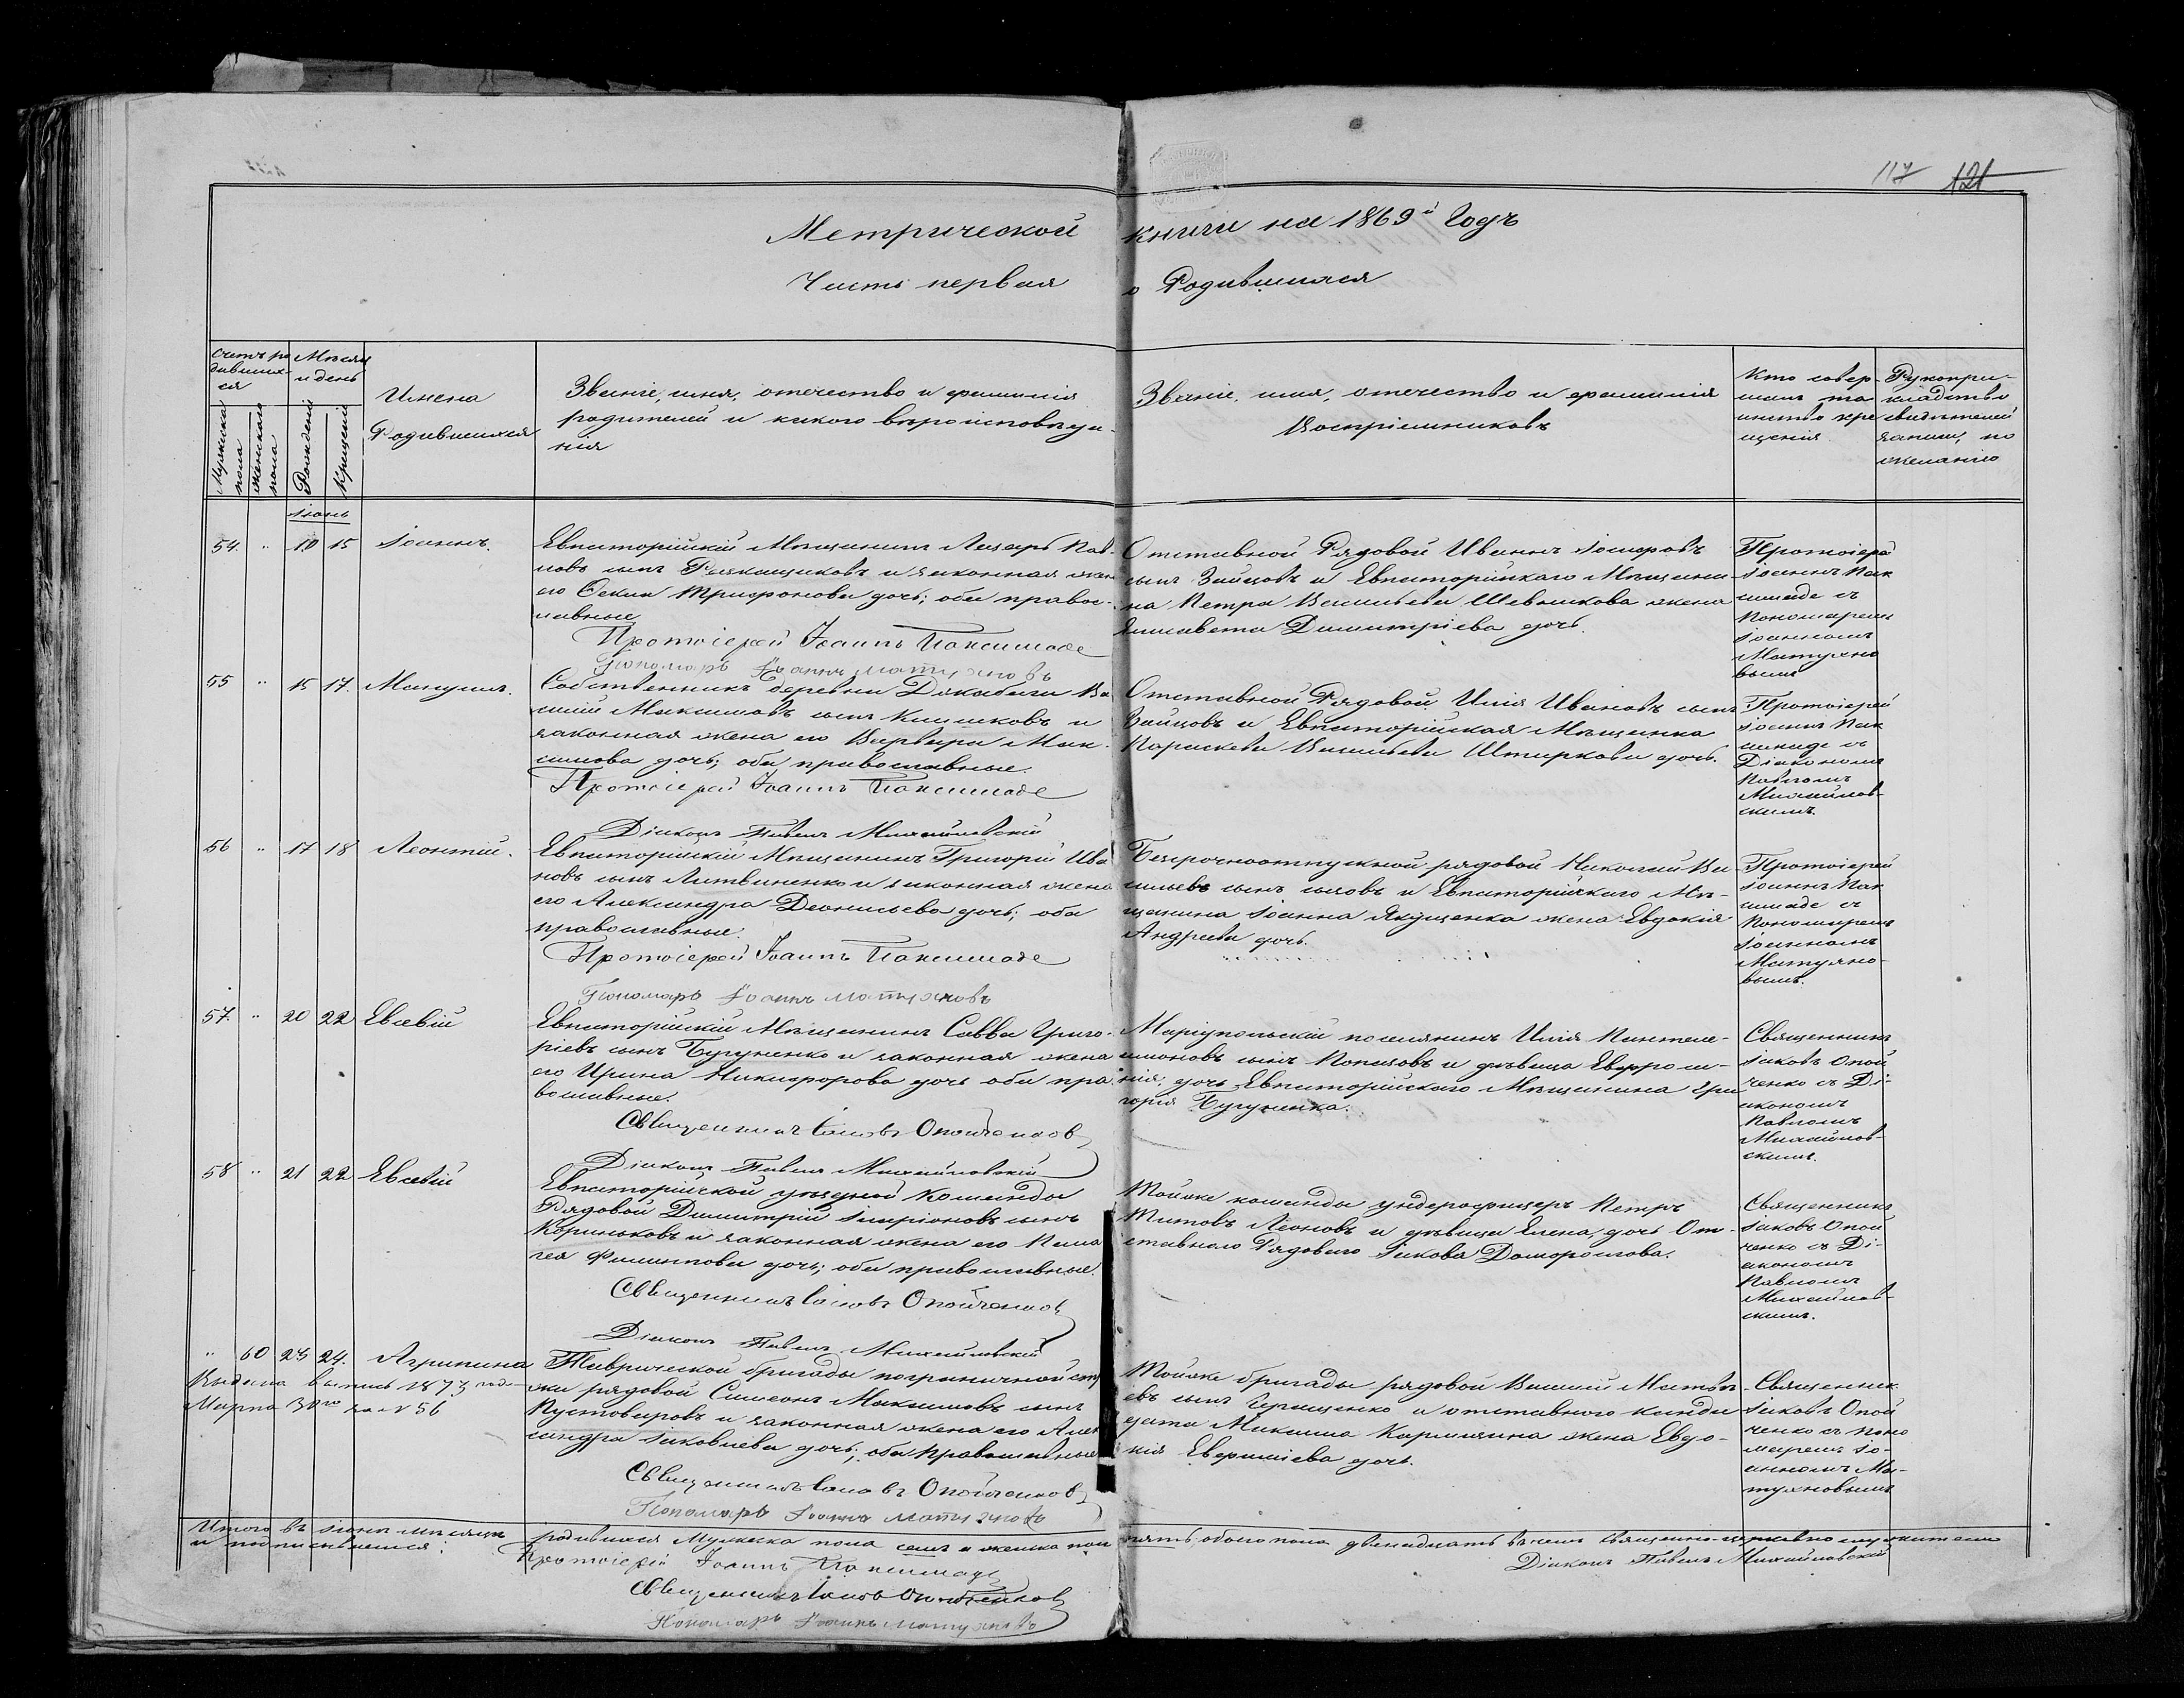 117 121
Метрической книги на 1869й Годъ
Часть первая о Родившихся
Счетъ родившихся
Мужеска пола
Женскаго пола
Мѣсяцъ и день
Рожденія
Крещенія
Имена
Родившихся
Званіе, имя, отечество и фамилія
родителей и какого вѣроисповѣда-
нія
Званіе, имя, отечество и фамилія
Воспріемниковъ
Кто совер-
шалъ та
инство кре
щенія
Рукопри-
кладство
свидѣтелей
записи, по
желанію
Іюнь
54. " 10 15 Іоаннъ.
Евпаторійскій Мѣщанинъ Лазарь Пав-
ловъ сынъ и законная жена
его Ѳекла Трифонова дочь; оба право-
славные
Протоіерей Іоаннъ Паксимаде
Пономарь Іоаннъ Матухновъ
Отставной Рядовой Иванъ сынъ Зайцовъ и Евпаторійскаго Мѣщани-
на Петра Васильева Шевчикова жена
Елисавета Димитріева дочь.
Протоіерей
Іоаннъ Пак
симаде съ
Пономаремъ
Іоанномъ
Матухно
вымъ
55 " 15 17. Мануилъ.
Собственникъ деревни Ва
силій Максимовъ сынъ Климковъ и
законная жена его Варвара Мак-
симова дочь; оба православные.
Протоіерей Іоаннъ Паксимаде
Діаконъ Павелъ Михайловскій
Отставной Рядовой Илія Ивановъ сынъ
Зайцовъ и Евпаторійская Мѣщанка
Параскева Васильева Штыркова дочь.
Протоіерей
Іоаннъ Пак
симаде съ
Діакономъ
Павломъ
Михайлов-
скимъ.
56 " 17 18 Леонтій.
Евпаторійскій Мѣщанинъ Григорій Ива
новъ сынъ Литвиненко и законная жена
его Александра Леонтьева дочь; оба
православные.
Протоіерей Іоаннъ Паксимаде
Пономарь Іоаннъ Матухновъ
Безсрочноотпускной рядовой Николай Ва-
сильевъ сынъ и Евпаторійскаго Мѣ-
щанина Іоанна Якущенка жена Евдокія
Андреева дочь.
Протоіерей
Іоаннъ Пак
симаде съ
Пономаремъ
Іоанномъ
Матухно-
вымъ.
57. " 20 22 Евсевій
Евпаторійскій Мѣщанинъ Савва Григо-
ріевъ сынъ Бугуненко и законная жена
его Ирина Никифорова дочь оба пра
вославные.
Священникъ Іаковъ Опойченковъ
Діаконъ Павелъ Михайловскій
Маріупольскій поселянинъ Илія Пантеле-
имоновъ сынъ Копцовъ и дѣвица Евфроси-
нія, дочь Евпаторійскаго Мѣщанина Гри
горія Бугуненка.
Священникъ
Іаковъ Опой
ченко съ Ді-
акономъ
Павломъ
Михайлов-
скимъ.
58 " 21 22 Евсевій
Евпаторійской уѣздной Команды
Рядовой Димитрій Иларіоновъ сынъ
Кориньковъ и законная жена его Пела
гея Филиппова дочь; оба православные.
Священникъ Іаковъ Опойченковъ
Діаконъ Павелъ Михайловскій
Тойже команды ундерофицеръ Петръ
Титовъ Леоновъ и дѣвица Елена, дочь От-
ставнаго Рядоваго Іакова Доморослова.
Священникъ
Іаковъ Опой
ченко съ Ді-
акономъ
Павломъ
Михайлов-
скимъ.
" 60 23 24. Агрипина
Выдана выпись 1873 года
Марта 30го за № 56
Таврической бригады пограничной стра
жи рядовой Симеонъ Максимовъ сынъ
Пустоваровъ и законная жена его Алек
сандра Іаковлева дочь; оба православные
Священникъ Іаковъ Опойченковъ
Пономарь Іоаннъ Матухновъ
Тойже бригады рядовой Василій Матвѣ-
евъ сынъ Геращенко и отставного канди
дата Максима Кормилина жена Евдо-
кія Евфиміева дочь.
Священникъ
Іаковъ Опой
ченко съ поно
маремъ Іо-
анномъ Ма-
тухновымъ
Итого въ Іюнѣ мѣсяцѣ родившихся Мужеска пола семь и женска пола пять, обоего пола двенадцать въ чемъ священно-церковно служители
и подписываемся:
Протоіерей Іоаннъ Паксимаде
Діаконъ Павелъ Михайловскій
Священникъ Іаковъ Опойченковъ
Пономарь Іоаннъ Матухновъ